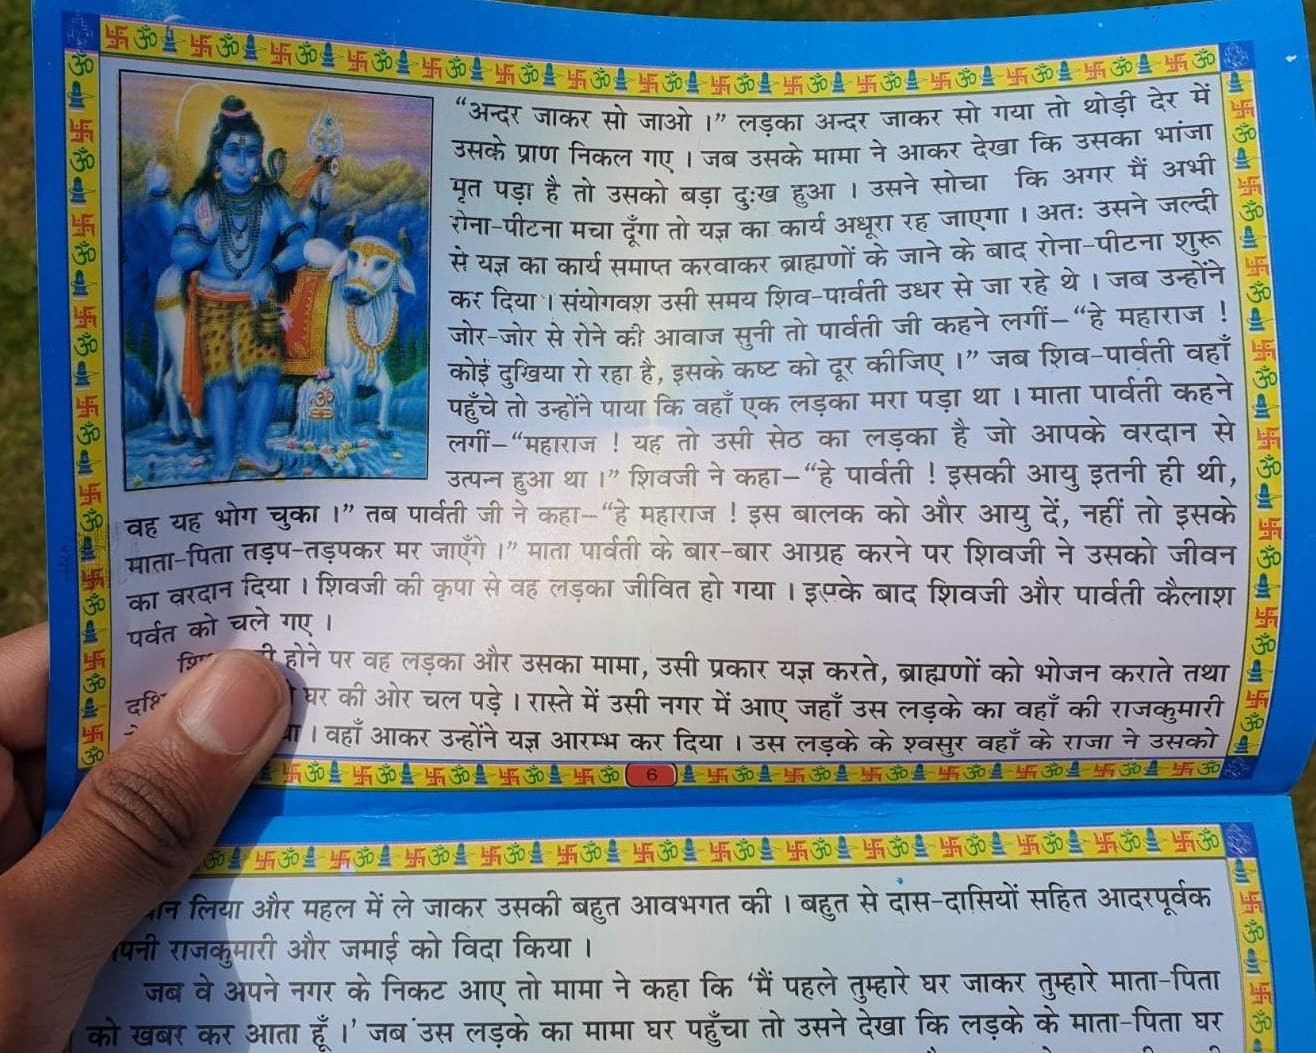 “अन्दर जाकर सो जाओ ।” लड़का अन्दर जाकर सो गया तो थोड़ी देर में
उसके प्राण निकल गए । जब उसके मामा ने आकर देखा कि उसका भांजा
मृत पड़ा है तो उसको बड़ा दुःख हुआ । उसने सोचा कि अगर मैं अभी
रोना-पीटना मचा दूँगा तो यज्ञ का कार्य अधूरा रह जाएगा । अतः उसने जल्दी
से यज्ञ का कार्य समाप्त करवाकर ब्राह्मणों के जाने के बाद रोना-पीटना शुरू
कर दिया । संयोगवश उसी समय शिव-पार्वती उधर से जा रहे थे । जब उन्होंने
जोर-जोर से रोने की आवाज सुनी तो पार्वती जी कहने लगीं–“हे महाराज !
कोई दुखिया रो रहा है, इसके कष्ट को दूर कीजिए ।” जब शिव-पार्वती वहाँ
पहुँचे तो उन्होंने पाया कि वहाँ एक लड़का मरा पड़ा था । माता पार्वती कहने
लगीं–“महाराज ! यह तो उसी सेठ का लड़का है जो आपके वरदान से
उत्पन्न हुआ था ।” शिवजी ने कहा–“हे पार्वती ! इसकी आयु इतनी ही थी,
वह यह भोग चुका ।” तब पार्वती जी ने कहा–“हे महाराज ! इस बालक को और आयु दें, नहीं तो इसके
माता-पिता तड़प-तड़पकर मर जाएँगे ।” माता पार्वती के बार-बार आग्रह करने पर शिवजी ने उसको जीवन
का वरदान दिया । शिवजी की कृपा से वह लड़का जीवित हो गया । इसके बाद शिवजी और पार्वती कैलाश
पर्वत को चले गए ।
होने पर वह लड़का और उसका मामा, उसी प्रकार यज्ञ करते, ब्राह्मणों को भोजन कराते तथा
घर की ओर चल पड़े । रास्ते में उसी नगर में आए जहाँ उस लड़के का वहाँ की राजकुमारी
। वहाँ आकर उन्होंने यज्ञ आरम्भ कर दिया । उस लड़के के श्वसुर वहाँ के राजा ने उसको
6
लिया और महल में ले जाकर उसकी बहुत आवभगत की । बहुत से दास-दासियों सहित आदरपूर्वक
राजकुमारी और जमाई को विदा किया ।
जब वे अपने नगर के निकट आए तो मामा ने कहा कि ‘मैं पहले तुम्हारे घर जाकर तुम्हारे माता-पिता
को खबर कर आता हूँ ।’ जब उस लड़के का मामा घर पहुँचा तो उसने देखा कि लड़के के माता-पिता घर